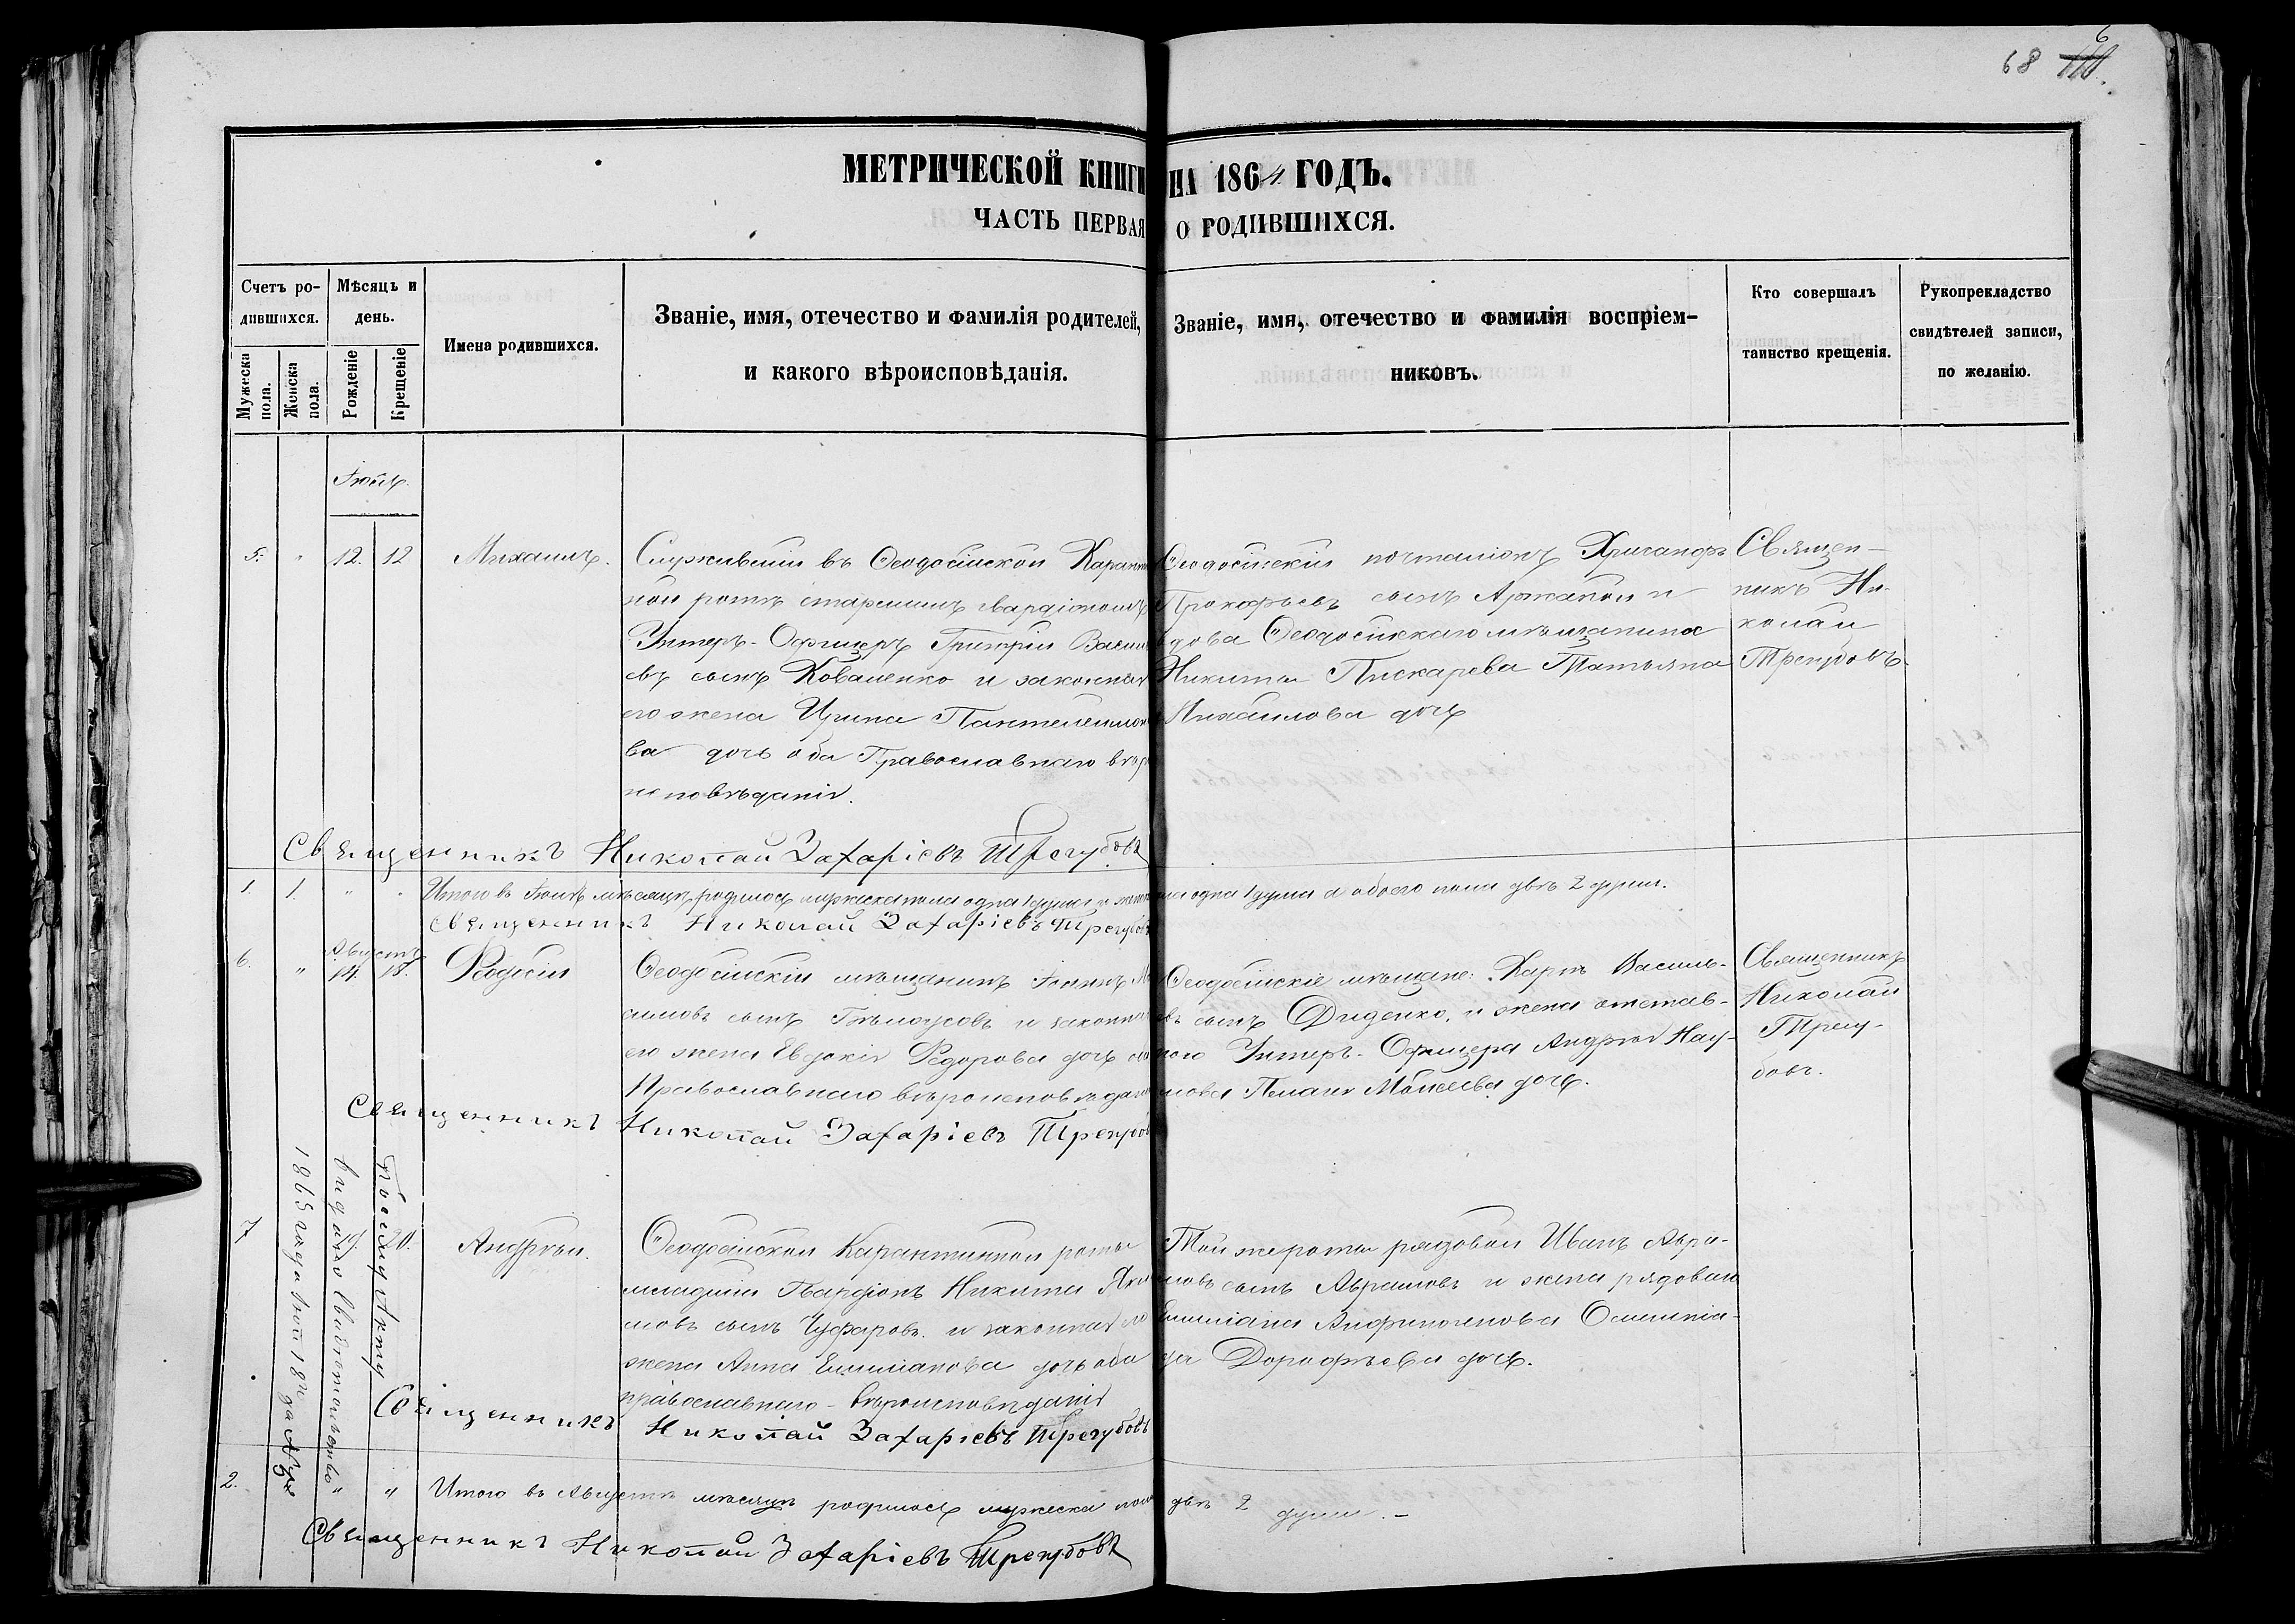 68 110.
6
МЕТРИЧЕСКОЙ КНИГИ НА 1864 ГОДЪ.
ЧАСТЬ ПЕРВАЯ О РОДИВШИХСЯ.
Счетъ ро-
дившихся.
Мужеска
пола.
Женска
пола.
Мѣсяць и
день.
Рожденіе
Крещеніе
Имена родившихся.
Званіе, имя, отечество и фамилія родителей,
и какого вѣроисповѣданія.
Званіе, имя, отечество и фамилія воспріем-
никовъ.
Кто совершалъ
таинство крещенія.
Рукоприкладство
свидѣтелей записи,
по желанію.
Іюль.
5. " 12. 12 Михаилъ.
Служившій въ Ѳеодосійской Каранти
ной ротѣ старшимъ гвардіономъ
Унтеръ-Офицеръ Григорій Васил
евъ сынъ Коваленко и законная
его жена Ирина Пантелеимоно
ва дочь оба Православнаго вѣро
исповѣданія.
Ѳеодосійскій почталіонъ Хрисанфъ
Прокофьевъ сынъ и
вдова Ѳеодосійскаго мѣщанина
Никиты Пискарева Татьяна
Михайлова дочь
Священ-
никъ Ни-
колай
Трегубовъ.
Священникъ Николай Захаріевъ Трегубовъ
1. 1. " " Итого въ Іюлѣ мѣсяцѣ родилось мужеска пола одна 1 душа и женска пола одна 1 душа а обоего пола двѣ 2 души.
Священникъ Николай Захаріевъ Трегубовъ
Августъ
6. " 14. 18. Ѳеодосій
Ѳеодосійскій мѣщанинъ Іоаннъ
аимовъ сынъ Бѣлоусовъ и законная
его жена Евдокія Ѳедорова дочь оба
Православнаго вѣроисповѣданія
Ѳеодосійскіе мѣщане: Карпъ Василь-
евъ сынъ Диденко, и жена отстав-
ного Унтеръ-Офицера Андрея Нау-
мова Моисеева дочь.
Священникъ
Николай
Трегу-
бовъ.
Священникъ Николай Захаріевъ Трегубовъ
7 20. Андрей.
Ѳеодосійской Карантинной роты
младшій Гвардіонъ Никита Яко
мовъ сынъ Чуфаровъ и законная его
жена Анна Емиліанова дочь оба
православнаго-вѣроисповѣданія
Той же роты рядовой Иванъ Авра-
мовъ сынъ Аврамовъ и жена рядоваго
Емиліана Олимпіа-
да Дорофѣева дочь.
Священникъ Николай Захаріевъ Трегубовъ
По сему Акту
выдано свидѣтельство
1865 года Іюл 18го за №
2. " " Итого въ Августѣ мѣсяцѣ родилось мужеска пола двѣ 2 души.-
Священникъ Николай Захаріевъ Трегубовъ